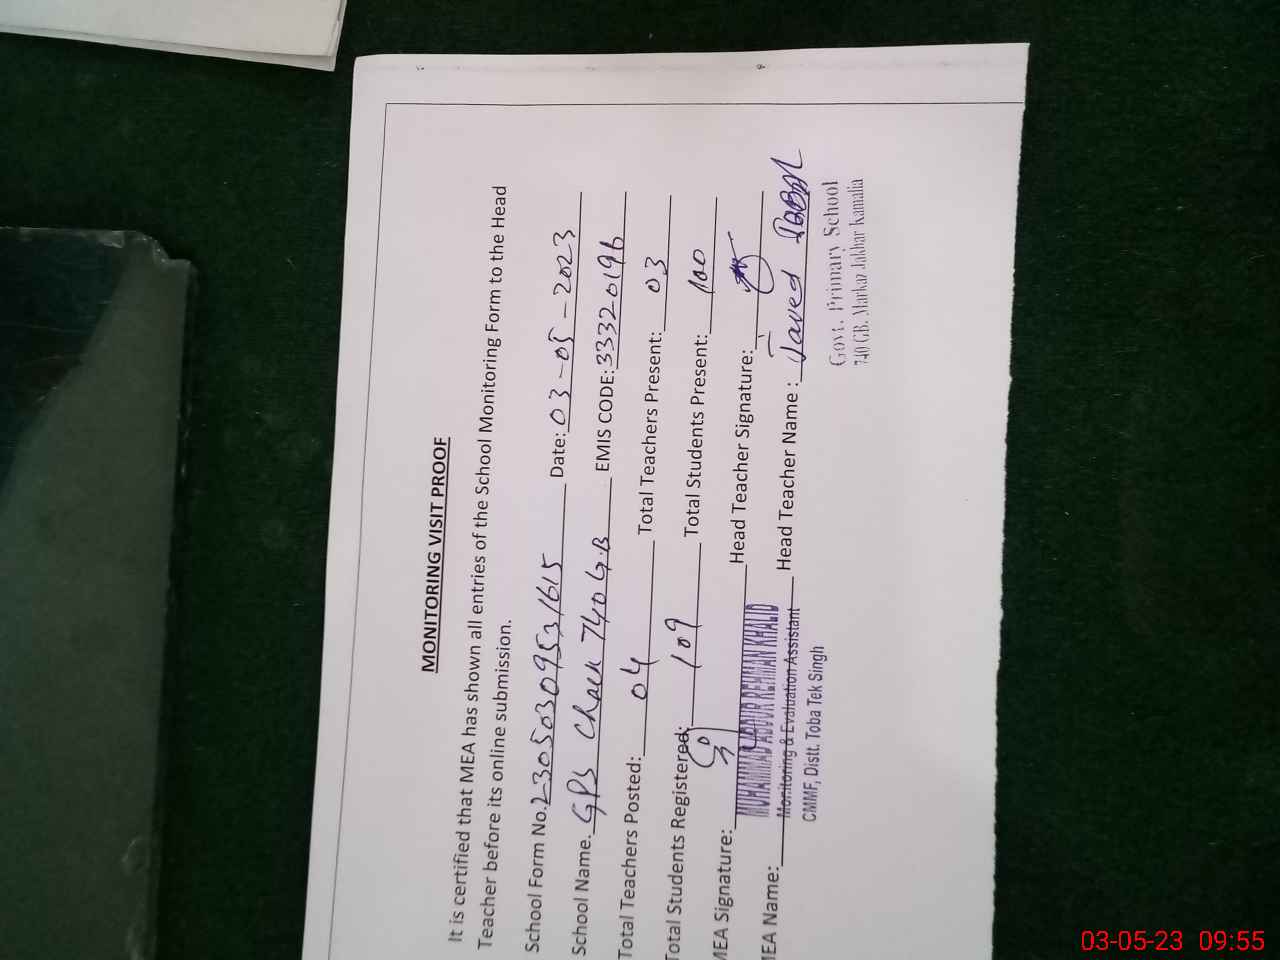 MONITORING VISIT PROOF
It is certified that MEA has shown all entries of the School Monitoring Form to the Head
Teacher before its online submission.
School Form No. 230503095531615 Date: 03-05-2023
School Name. GPS Chack 740 G.B EMIS CODE: 33320196
Total Teachers Posted: 04 Total Teachers Present: 03
Total Students Registered: 109 Total Students Present: 100
MEA Signature: Head Teacher Signature:
MEA Name: MUHAMMAD ABDUR REHMAN KHALID Head Teacher Name : Javed Iqbal
Monitoring & Evaluation Assistant
CMMF, Distt. Toba Tek Singh
Govt. Primary School
740 GB. Markaz Jakhar Kamalia
03-05-23 09:55